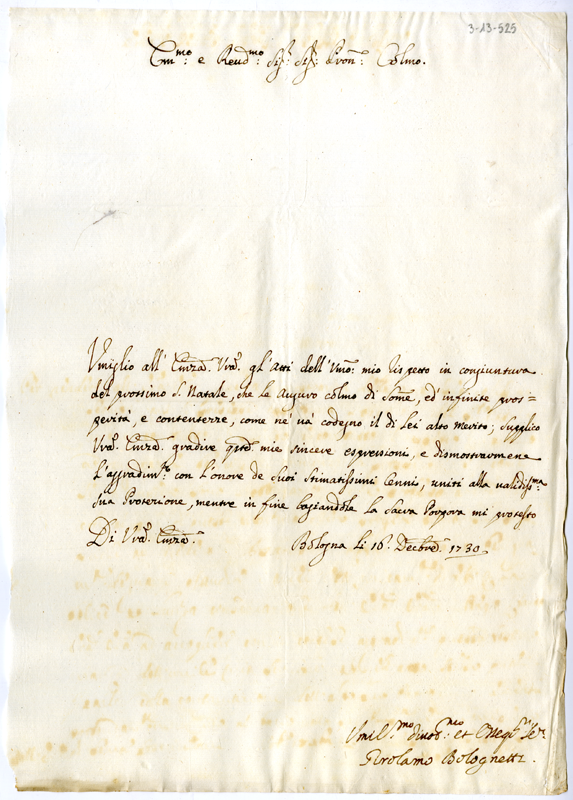 3-13-525
Em.mo e Reud.mo Sig.r Sig.r Pron. Colmo.
Umilio all' Eminza. Vra. gl'atti dell' Umo. mio rispetto in congiuntura
del prossimo S. Natale, che le Auguro colmo di Some, ed' infinite pros=
perità, e contentezze, come nè và codegno il di Lei alto merito; Supplico
Vra. Eminza. gradire queste mie sincere espressioni, e dimostrarmene
l'aggradim.to con l'onore de Suoi Stimatissimi Cenni, uniti alla validiss.ma
Sua Protezione, mentre in fine bagiandole la Sacra Porpora mi protesto
Di Vra. Eminza.
Bologna li 16. Decbre. 1730.
Umil.mo Diuot.mo et Osseq. Se.r
Girolamo Bolognetti.